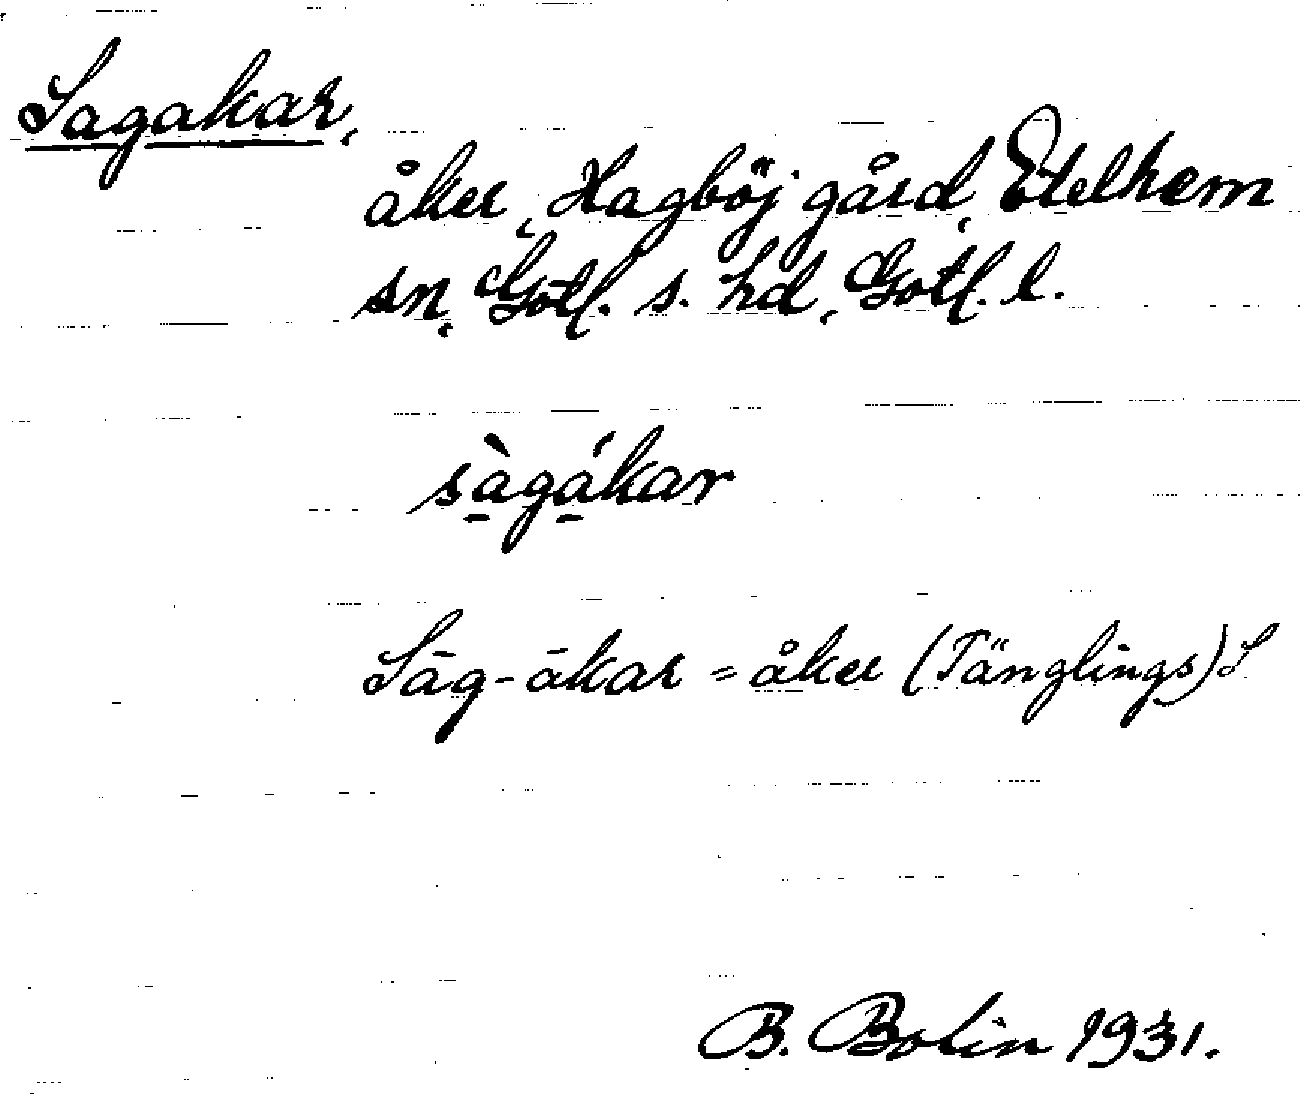 Sagakar,
åker, Hagböj gård, Etelhem
sn, Gotl. s. hd, Gotl. l.
sà̱gá̱kar
Sāg-ākar = åker (Tänglings) S
B. Bolin 1931.